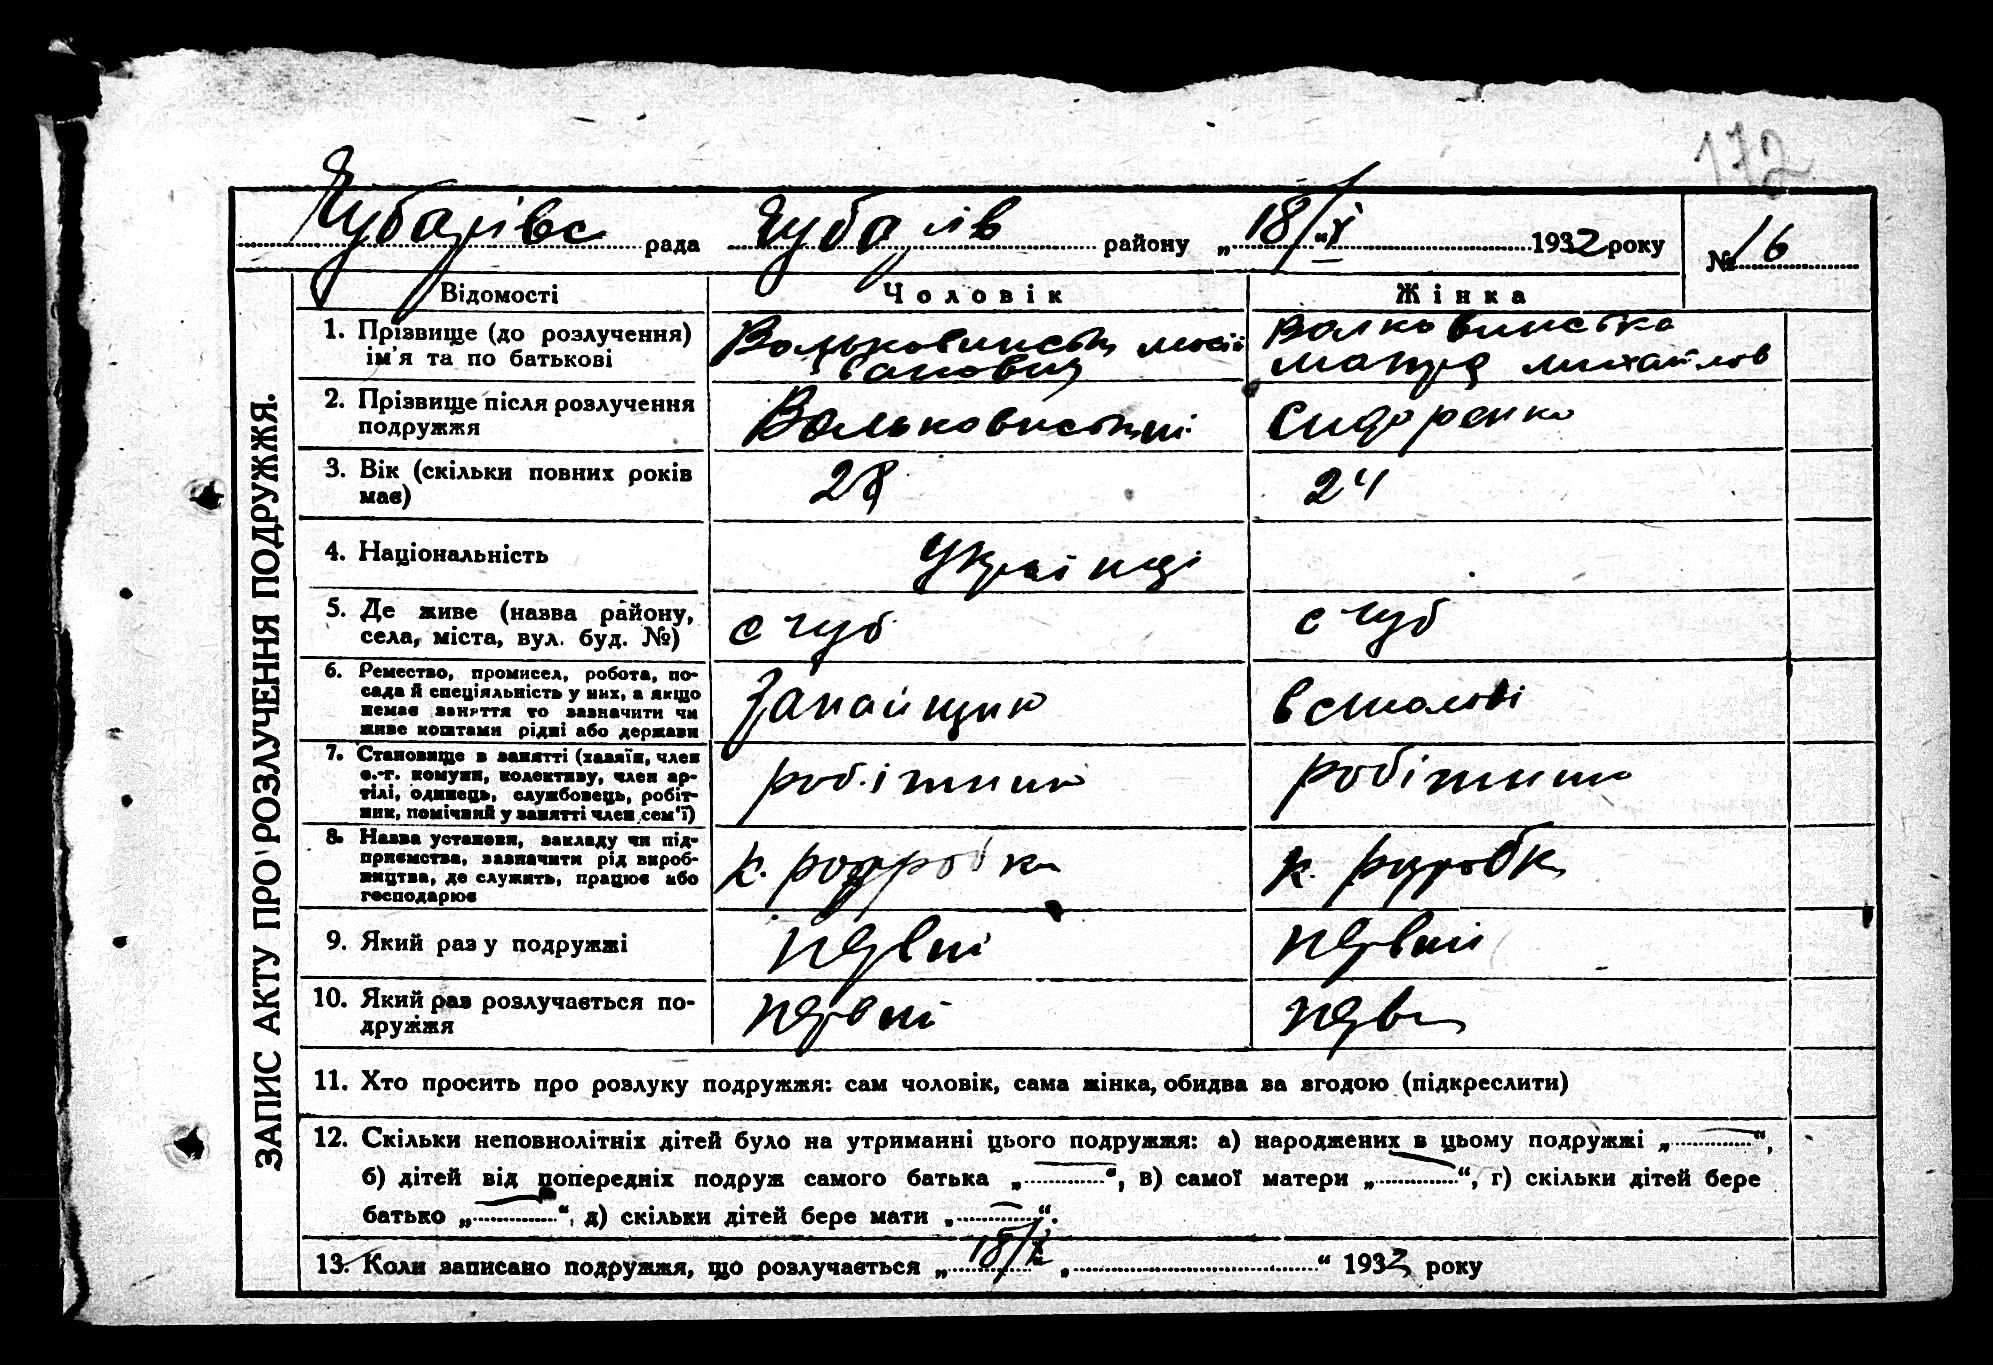 172
Чубарівс рада Чубарів району „18/X“ 1932 року № 16
ЗАПИС АКТУ ПРО РОЗЛУЧЕННЯ ПОДРУЖЖЯ.
Відомості Чоловік Жінка
1. Прізвище (до розлучення) ім'я та по батькові
Волковинська
михайлов
2. Прізвище після розлучення подружжя
Сидоренко
3. Вік (скільки повних років має) 28 24
4. Національність Українці
5. Де живе (назва району, села, міста, вул. буд. №) с чуб с чуб
6. Ремество, промисел, робота, посада й спеціяльність у них, а якщо немає заняття то зазначити чи живе коштами рідні або держави
7. Становище в занятті (хазяїн, член с.-г. комуни, колективу, член артілі, одинець, службовець, робітник, помічний у занятті член сем'ї) робітник робітник
8. Назва установи, закладу чи підприємства, зазначити рід виробництва, де служить, працює або господарює
9. Який раз у подружжі первий первий
10. Який раз розлучається подружжя первий перв
11. Хто просить про розлуку подружжя: сам чоловік, сама жінка, обидва за згодою (підкреслити)
12. Скільки неповнолітніх дітей було на утриманні цього подружжя: а) народжених в цьому подружжі „—“,
б) дітей від попередніх подруж самого батька „—“, в) самої матери „—“, г) скільки дітей бере
батько „—“, д) скільки дітей бере мати „—“.
13. Коли записано подружжя, що розлучається „18/X „ “ 1932 року